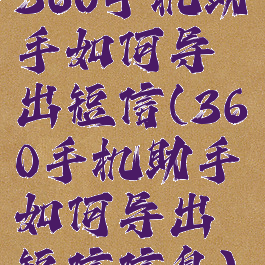 360手机助
手如何导
出短信(36
0手机助手
如何导出
短信信息)